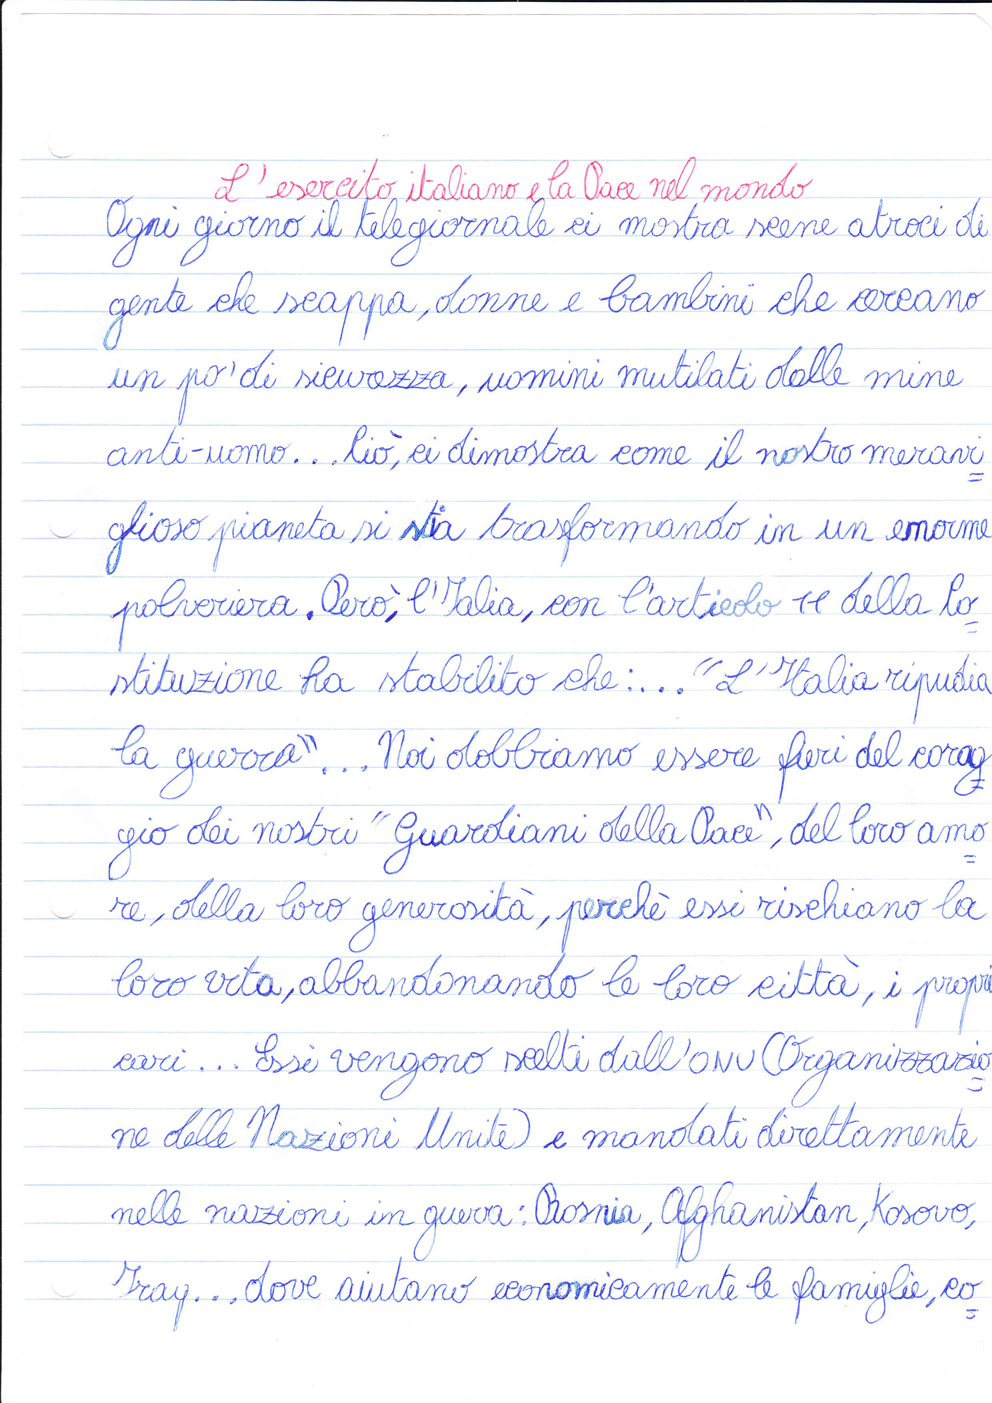 L'esercito italiano e la Pace nel mondo
Ogni giorno il telegiornale ci mostra scene atroci di
gente che scappa, donne e bambini che cercano
un po' di sicurezza, uomini mutilati dalle mine
anti-uomo... Ciò, ci dimostra come il nostro meravi=
glioso pianeta si stia trasformando in un enorme
polveriera. Però, l'Italia, con l'articolo 11 della Co=
stituzione ha stabilito che:... "L'Italia ripudia
la guerra"... Noi dobbiamo essere fieri del corag=
gio dei nostri "Guardiani della Pace", del loro amo=
re, della loro generosità, perchè essi rischiano la
loro vita, abbandonando le loro città, i propri
cari... Essi vengono scelti dall'ONU (Organizzazio=
ne delle Nazioni Unite) e mandati direttamente
nelle nazioni in guerra: Bosnia, Afghanistan, Kosovo,
Iraq... dove aiutano economicamente le famiglie, co=